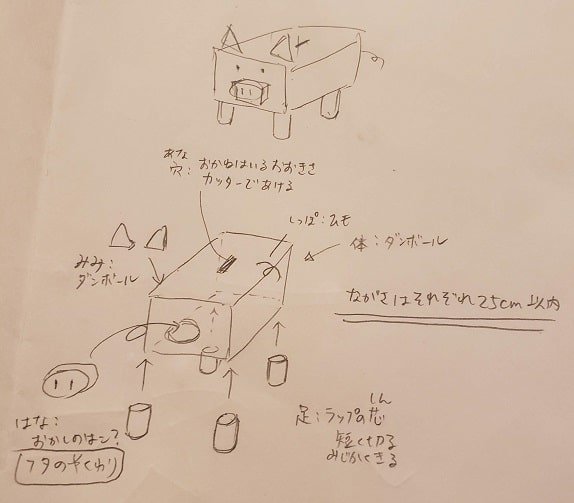 あな
穴：おかねはいるおおきさ
カッターであける
しっぽ：ひも
体：ダンボール
みみ：
ダンボール
ながさはそれぞれ25cm以内
はな：
おかしのはこ？
フタのやくわり
しん
足：ラップの芯
短く切る
みじかくきる